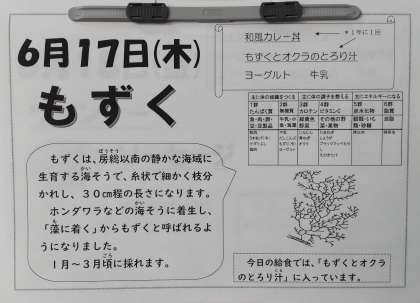 6月17日(木)
もずく
和風カレー丼
*1年に1回
もずくとオクラのとろり汁
ヨーグルト 牛乳
主に体の組織をつくる 主に体の調子を整える 主にエネルギーになる
1群 2群 3群 4群 5群 6群
たんぱく質 無機質 カロテン ビタミンC 炭水化物 脂質
もずくは、房総以南の静かな海域に
ぼうそう
生育する海そうで、糸状で細かく枝分
かれし、30㎝程の長さになります。
ホンダワラなどの海そうに着生し、
「藻に着く」からもずくと呼ばれるよ
うになりました。
1月～3月頃に採れます。
今日の給食では、「もずくとオクラ
のとろり汁」に入っています。